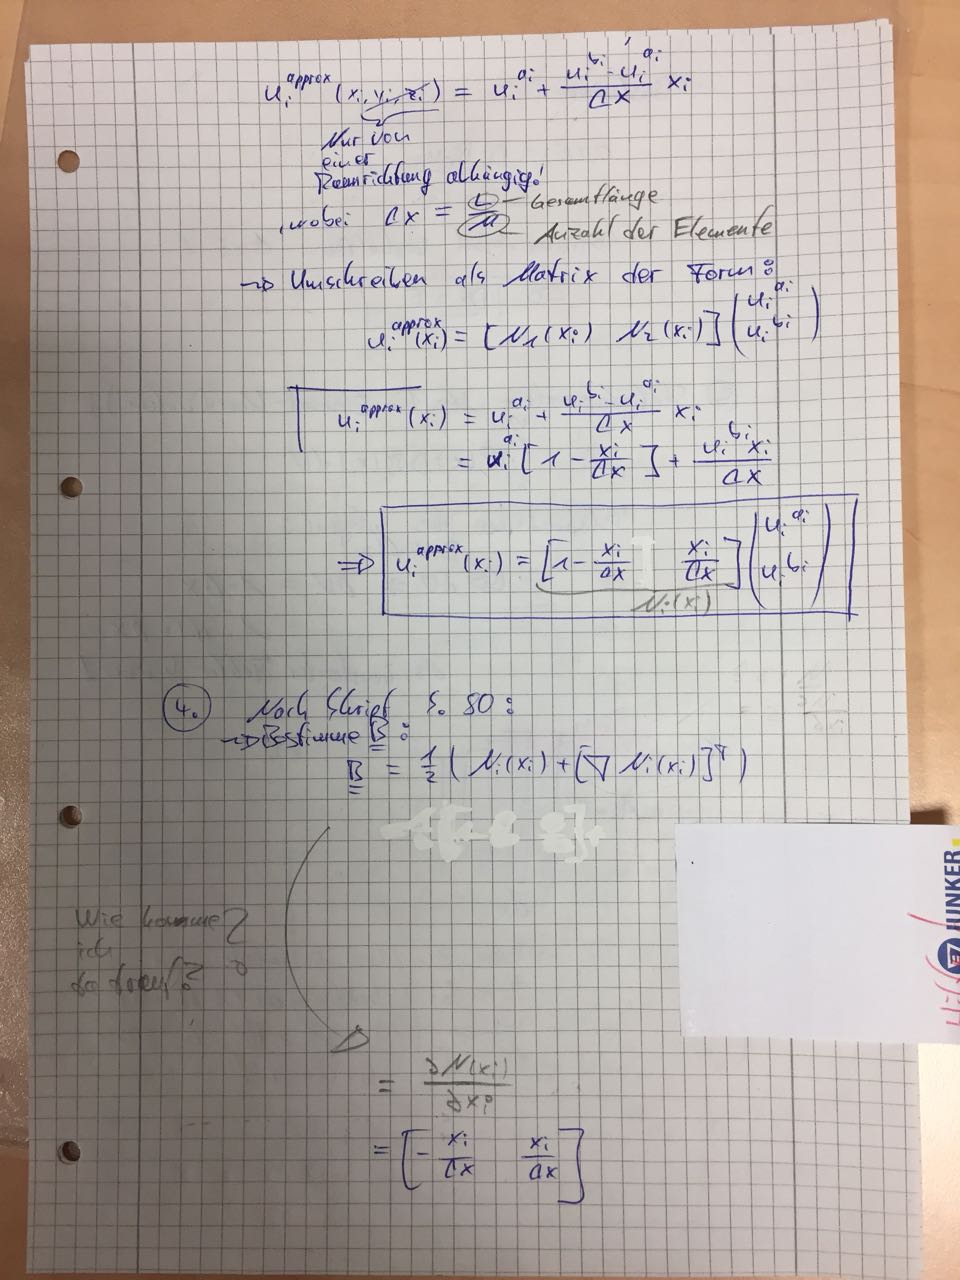 u_i^approx (x_i, y_i, z_i) = u_i^{a_i} + \frac{u_i^{b_i} - u_i^{a_i}}{Δx} x_i
Nur von
einer
Raumrichtung abhängig!
, wobei Δx = \frac{L}{M}
Gesamtlänge
Anzahl der Elemente
→ Umschreiben als Matrix der Form:
u_i^approx (x_i) = [N_1(x_i) N_2(x_i)] (u_i^{a_i} u_i^{b_i})
u_i^approx (x_i) = u_i^{a_i} + \frac{u_i^{b_i} - u_i^{a_i}}{Δx} x_i
= u_i^{a_i} [1 - \frac{x_i}{Δx}] + \frac{u_i^{b_i} x_i}{Δx}
⇒ u_i^approx (x_i) = [1 - \frac{x_i}{Δx} \frac{x_i}{Δx}] (u_i^{a_i} u_i^{b_i})
N_i(x_i)
4. Nach S. 80:
→ Bestimme B:
B = \frac{1}{2} ( N_i(x_i) + [∇ N_i(x_i)]^T )
Wie komme
ich
da drauf?
= \frac{∂N(x_i)}{∂x_i}
= [-\frac{x_i}{Δx} \frac{x_i}{Δx}]
JUNKER